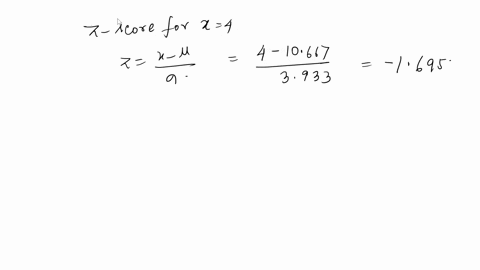 z-score for x=4
z = x-μ/σ = 4-10.667/3.933 = -1.695